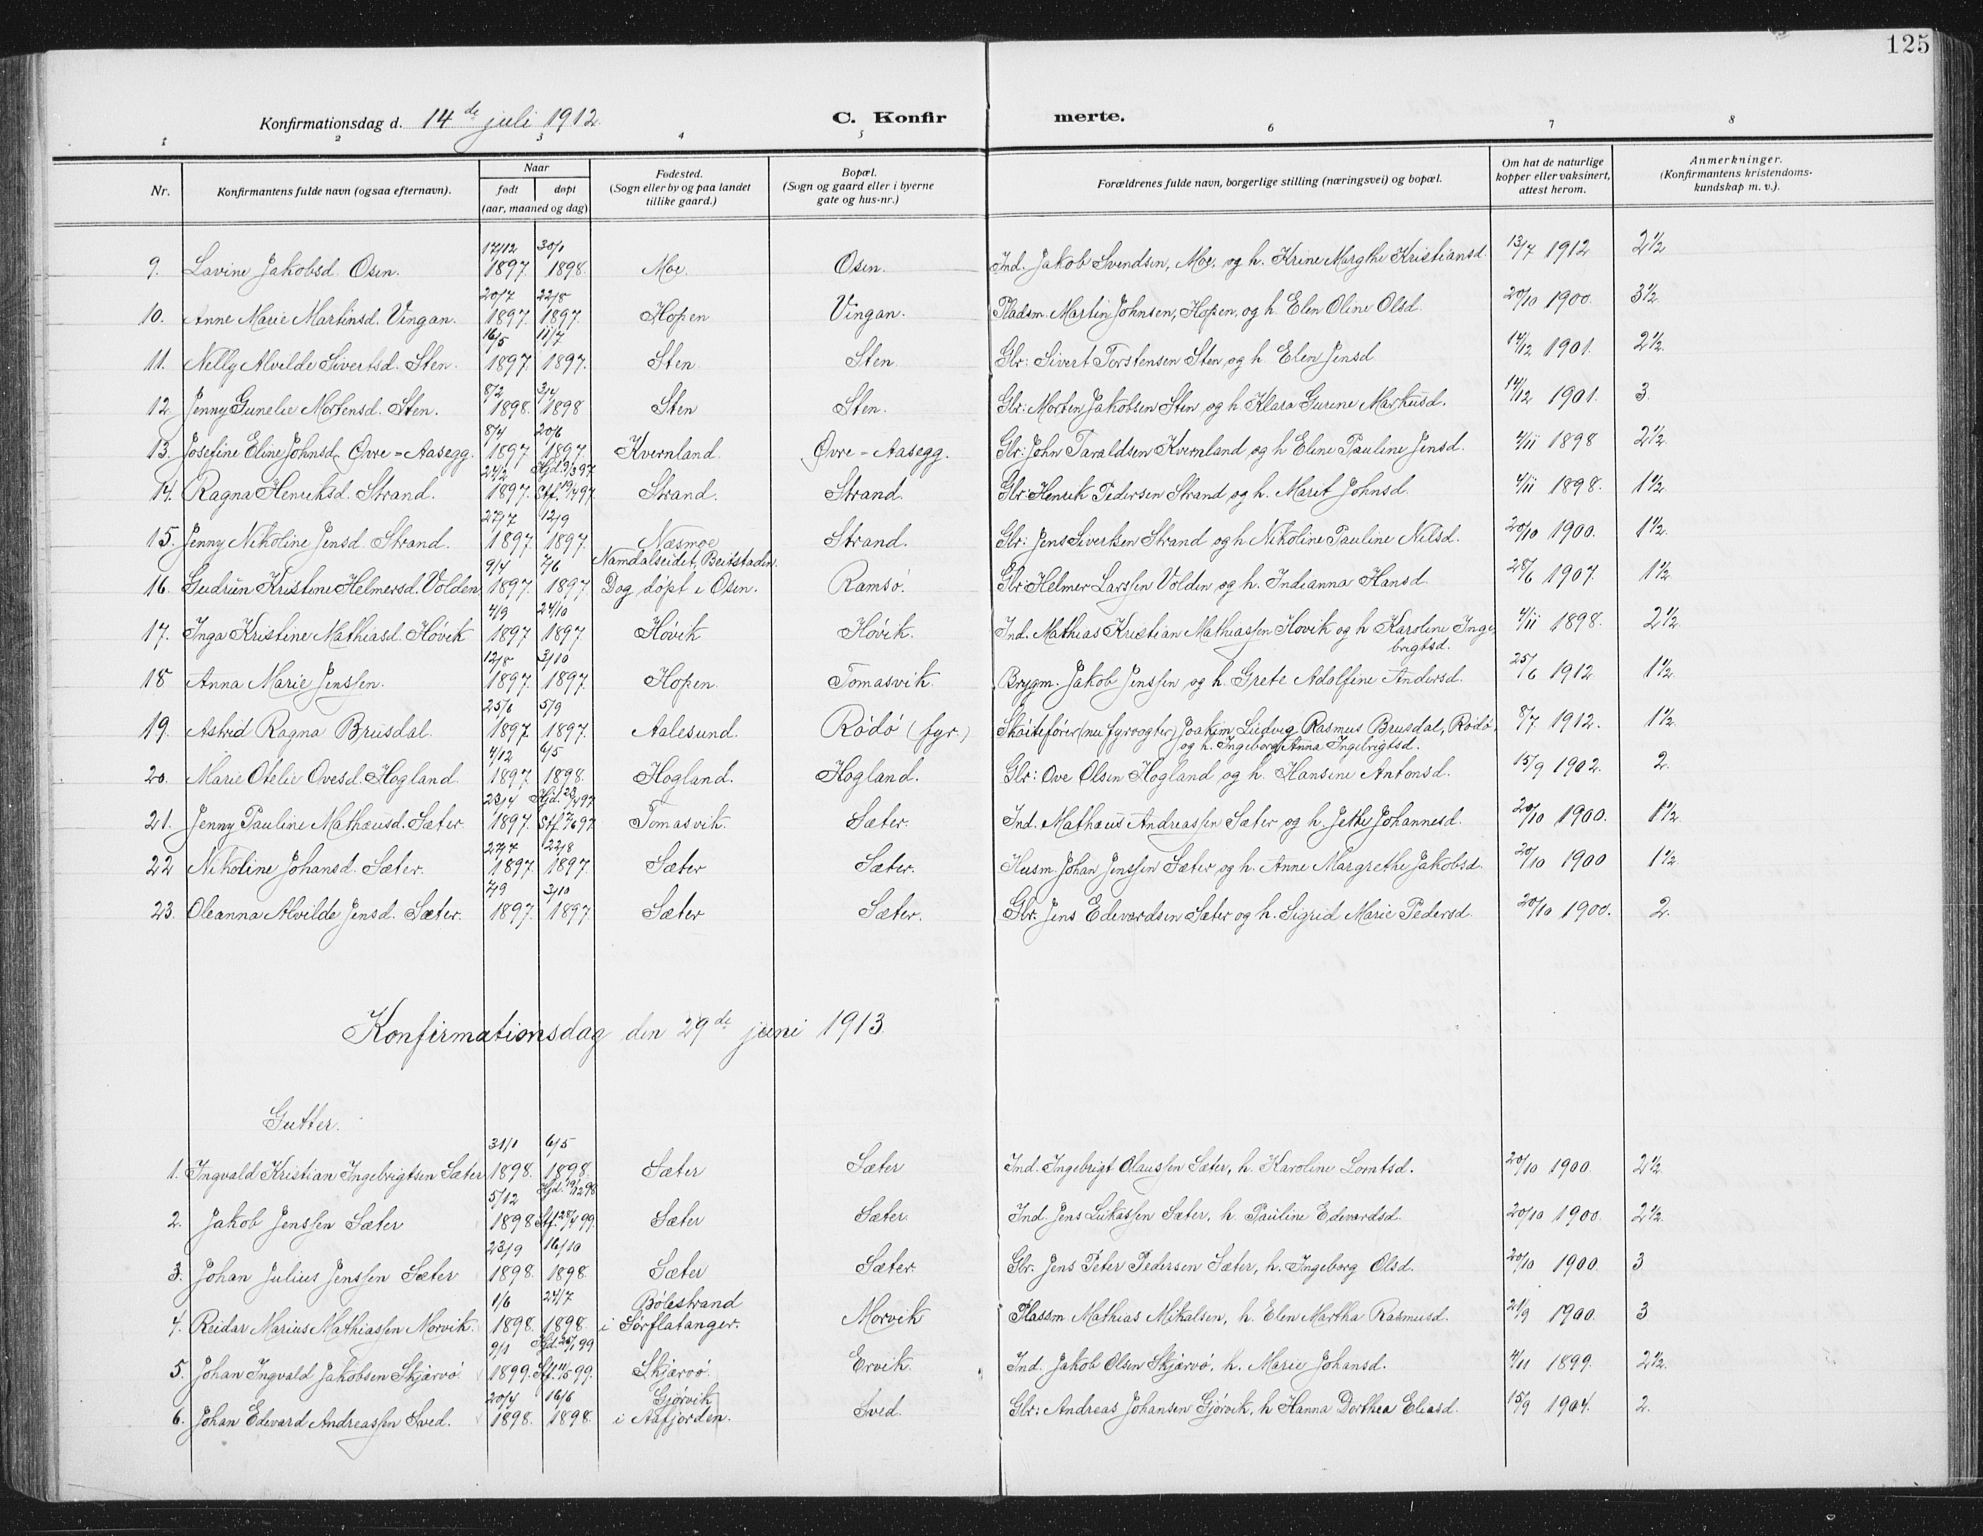 125
Konfirmationsdag d. 14de juli 1912. C. Konfirmerte.
1 2 3 4 5 6 7 8
Nr. Konfirmantens fulde navn (ogsaa efternavn). Naar født døpt (aar, maaned og dag) Fødested. (Sogn eller by og paa landet tillike gaard.) Bopæl. (Sogn og gaard eller i byerne gate og hus-nr.) Forældrenes fulde navn, borgerlige stilling (næringsvei) og bopæl. Om hat de naturlige kopper eller vaksinert, attest herom. Anmerkninger. (Konfirmantens kristendomskundskap m. v.).
9. Lavine Jakobsd. Osen. 17/12 1897 30/1 1898. Moe. Osen. Ind. Jakob Svendsen, Moe, og h. Krine Margthe Kristiansd. 13/7 1912 2 1/2
10. Anne Marie Martinsd. Vingan. 20/7 1897. 22/8 1897. Hopen Vingan. Pladsm. Martin Johnsen, Hopen, og h. Elen Oline Olsd. 20/10 1900. 3 1/2
11. Nelly Alvilde Sivertsd. Sten. 16/5 1897. 11/7 1897. Sten. Sten. Gbr: Sivert Torstensen Sten og h. Elen Jensd. 14/12 1901. 2 1/2
12. Jenny Gunelie Mortensd. Sten. 8/2 1898. 3/4 1898 Sten Sten. Gbr: Morten Jakobsen Sten og h. Klara Gurine Markusd. 14/12 1901. 3.
13. Josefine Eline Johnsd. Øvre=Aasegg. 8/4 1897. 20/6 1897. Kvernland. Øvre=Aasegg. Gbr: John Taraldsen Kvernland og h. Eline Pauline Jensd. 4/11 1898 2 1/2
14. Ragna Henriksd. Strand. 24/2 1897. Hjd. 9/3 97 Stf. 19/4 97. Strand. Strand. Gbr: Henrik Pedersen Strand og h. Marit Johnsd. 4/11 1898. 1 1/2
15. Jenny Nikoline Jensd. Strand. 27/7 1897. 12/9 1897. Næsmoe Strand. Gbr: Jens Sivertsen Strand og h. Nikoline Pauline Nilsd. 20/10 1900. 1 1/2
16. Gudrun Kristine Helmersd. Volden 9/4 1897. 7/6 1897 Namdalseidet, Beitstaden. Dog døpt i Osen. Ramsø. Gbr: Helmer Larssen Volden og h. Indianna Hansd. 28/6 1907. 1 1/2
17. Inga Kristine Mathiasd. Høvik 4/9 1897 24/10 1897 Høvik Høvik. Ind. Mathias Kristian Mathiassen Høvik og h. Karoline Ingebrigtsd. 4/11 1898. 2 1/2
18. Anna Marie Jenssen. 12/8 1897. 3/10 1897. Hopen. Tomasvik. Brygm. Jakob Jenssen og h. Grete Adolfine Andersd. 25/6 1912 1 1/2
19. Astrid Ragna Brusdal. 25/6 1897. 5/9 1897. Aalesund. Rødø (fyr.) Skøitefører (nu fyrvogter) Joakim Ludvig Rasmus Brusdal, Rødø, og h. Ingeborg Anna Ingebrigtsd. 8/7 1912. 1 1/2
20. Marie Otelie Ovesd. Hogland. 4/12 1897. 6/5 1898. Hogland. Hogland. Gbr: Ove Olsen Hogland og h. Hansine Antonsd. 15/9 1902. 2.
21. Jenny Pauline Mathæusd. Sæter. 23/4 1897. Hjd. 23/4 97 Stf. 7/6 97. Tomasvik. Sæter. Ind. Mathæus Andreassen Sæter og h. Jette Johannesd. 20/10 1900. 1 1/2
22 Nikoline Johansd. Sæter. 27/7 1897. 22/8 1897. Sæter Sæter. Husm. Johan Jenssen Sæter, og h. Anne Margrethe Jakobsd. 20/10 1900 1 1/2
23. Oleanna Alvilde Jensd. Sæter. 7/9 1897. 3/10 1897. Sæter Sæter. Gbr. Jens Edevardsen Sæter og h. Sigrid Marie Pedersd. 20/10 1900. 2.
Konfirmationsdag den 29de juni 1913.
Gutter.
1. Ingvald Kristian Ingebrigtsen Sæter 31/1 1898. 6/5 1898. Sæter Sæter Ind. Ingebrigt Olaussen Sæter, h. Karoline Lorntsd. 20/10 1900. 2 1/2
2. Jakob Jenssen Sæter 5/12 1898 Hjd. 19/12 98 Stf. 28/4 99. Sæter Sæter. Ind. Jens Lukassen Sæter, h. Pauline Edevardsd. 20/10 1900. 2 1/2
3. Johan Julius Jenssen Sæter 23/9 1898. 16/10 1898. Sæter Sæter Gbr. Jens Peter Pedersen Sæter, h. Ingeborg Olsd. 20/10 1900. 3
4. Reidar Marius Mathiassen Morvik. 1/6 1898. 24/7 1898. Bølestrand i Sørflatanger. Morvik Plassm. Mathias Mikalsen, h. Elen Martha Rasmusd. 21/9 1900. 3
5. Johan Ingvald Jakobsen Skjærvø 9/1 1899. Hjd. 25/1 99 Stf. 11/5 99. Skjærvø. Ervik. Ind. Jakob Olsen Skjærvø, h. Marie Johansd. 4/11 1899. 2 1/2
6. Johan Edevard Andreassen Sved. 20/4 1898. 16/6 1898. Gjørvik i Aafjorden. Sved. Gbr: Andreas Johansen Gjørvik, h. Hanna Dorthea Eliasd. 15/9 1904. 2.